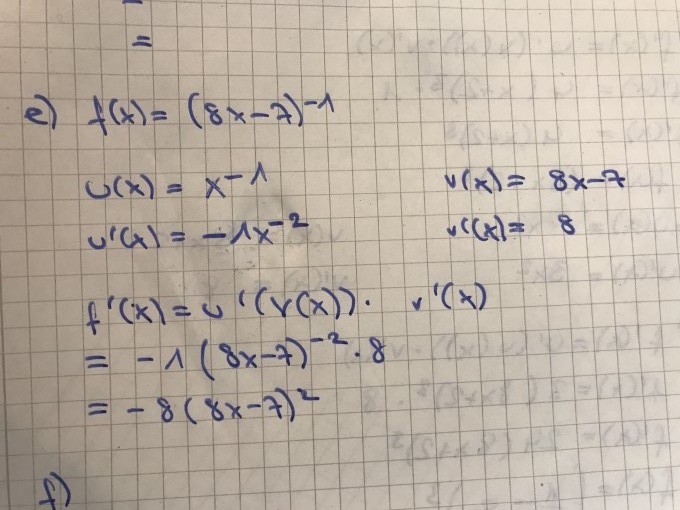 =
e) f(x) = (8x-7)⁻¹
u(x) = x⁻¹ v(x) = 8x-7
u'(x) = -1x⁻² v'(x) = 8
f'(x) = u'(v(x)) · v'(x)
= -1(8x-7)⁻² · 8
= -8(8x-7)²
f)